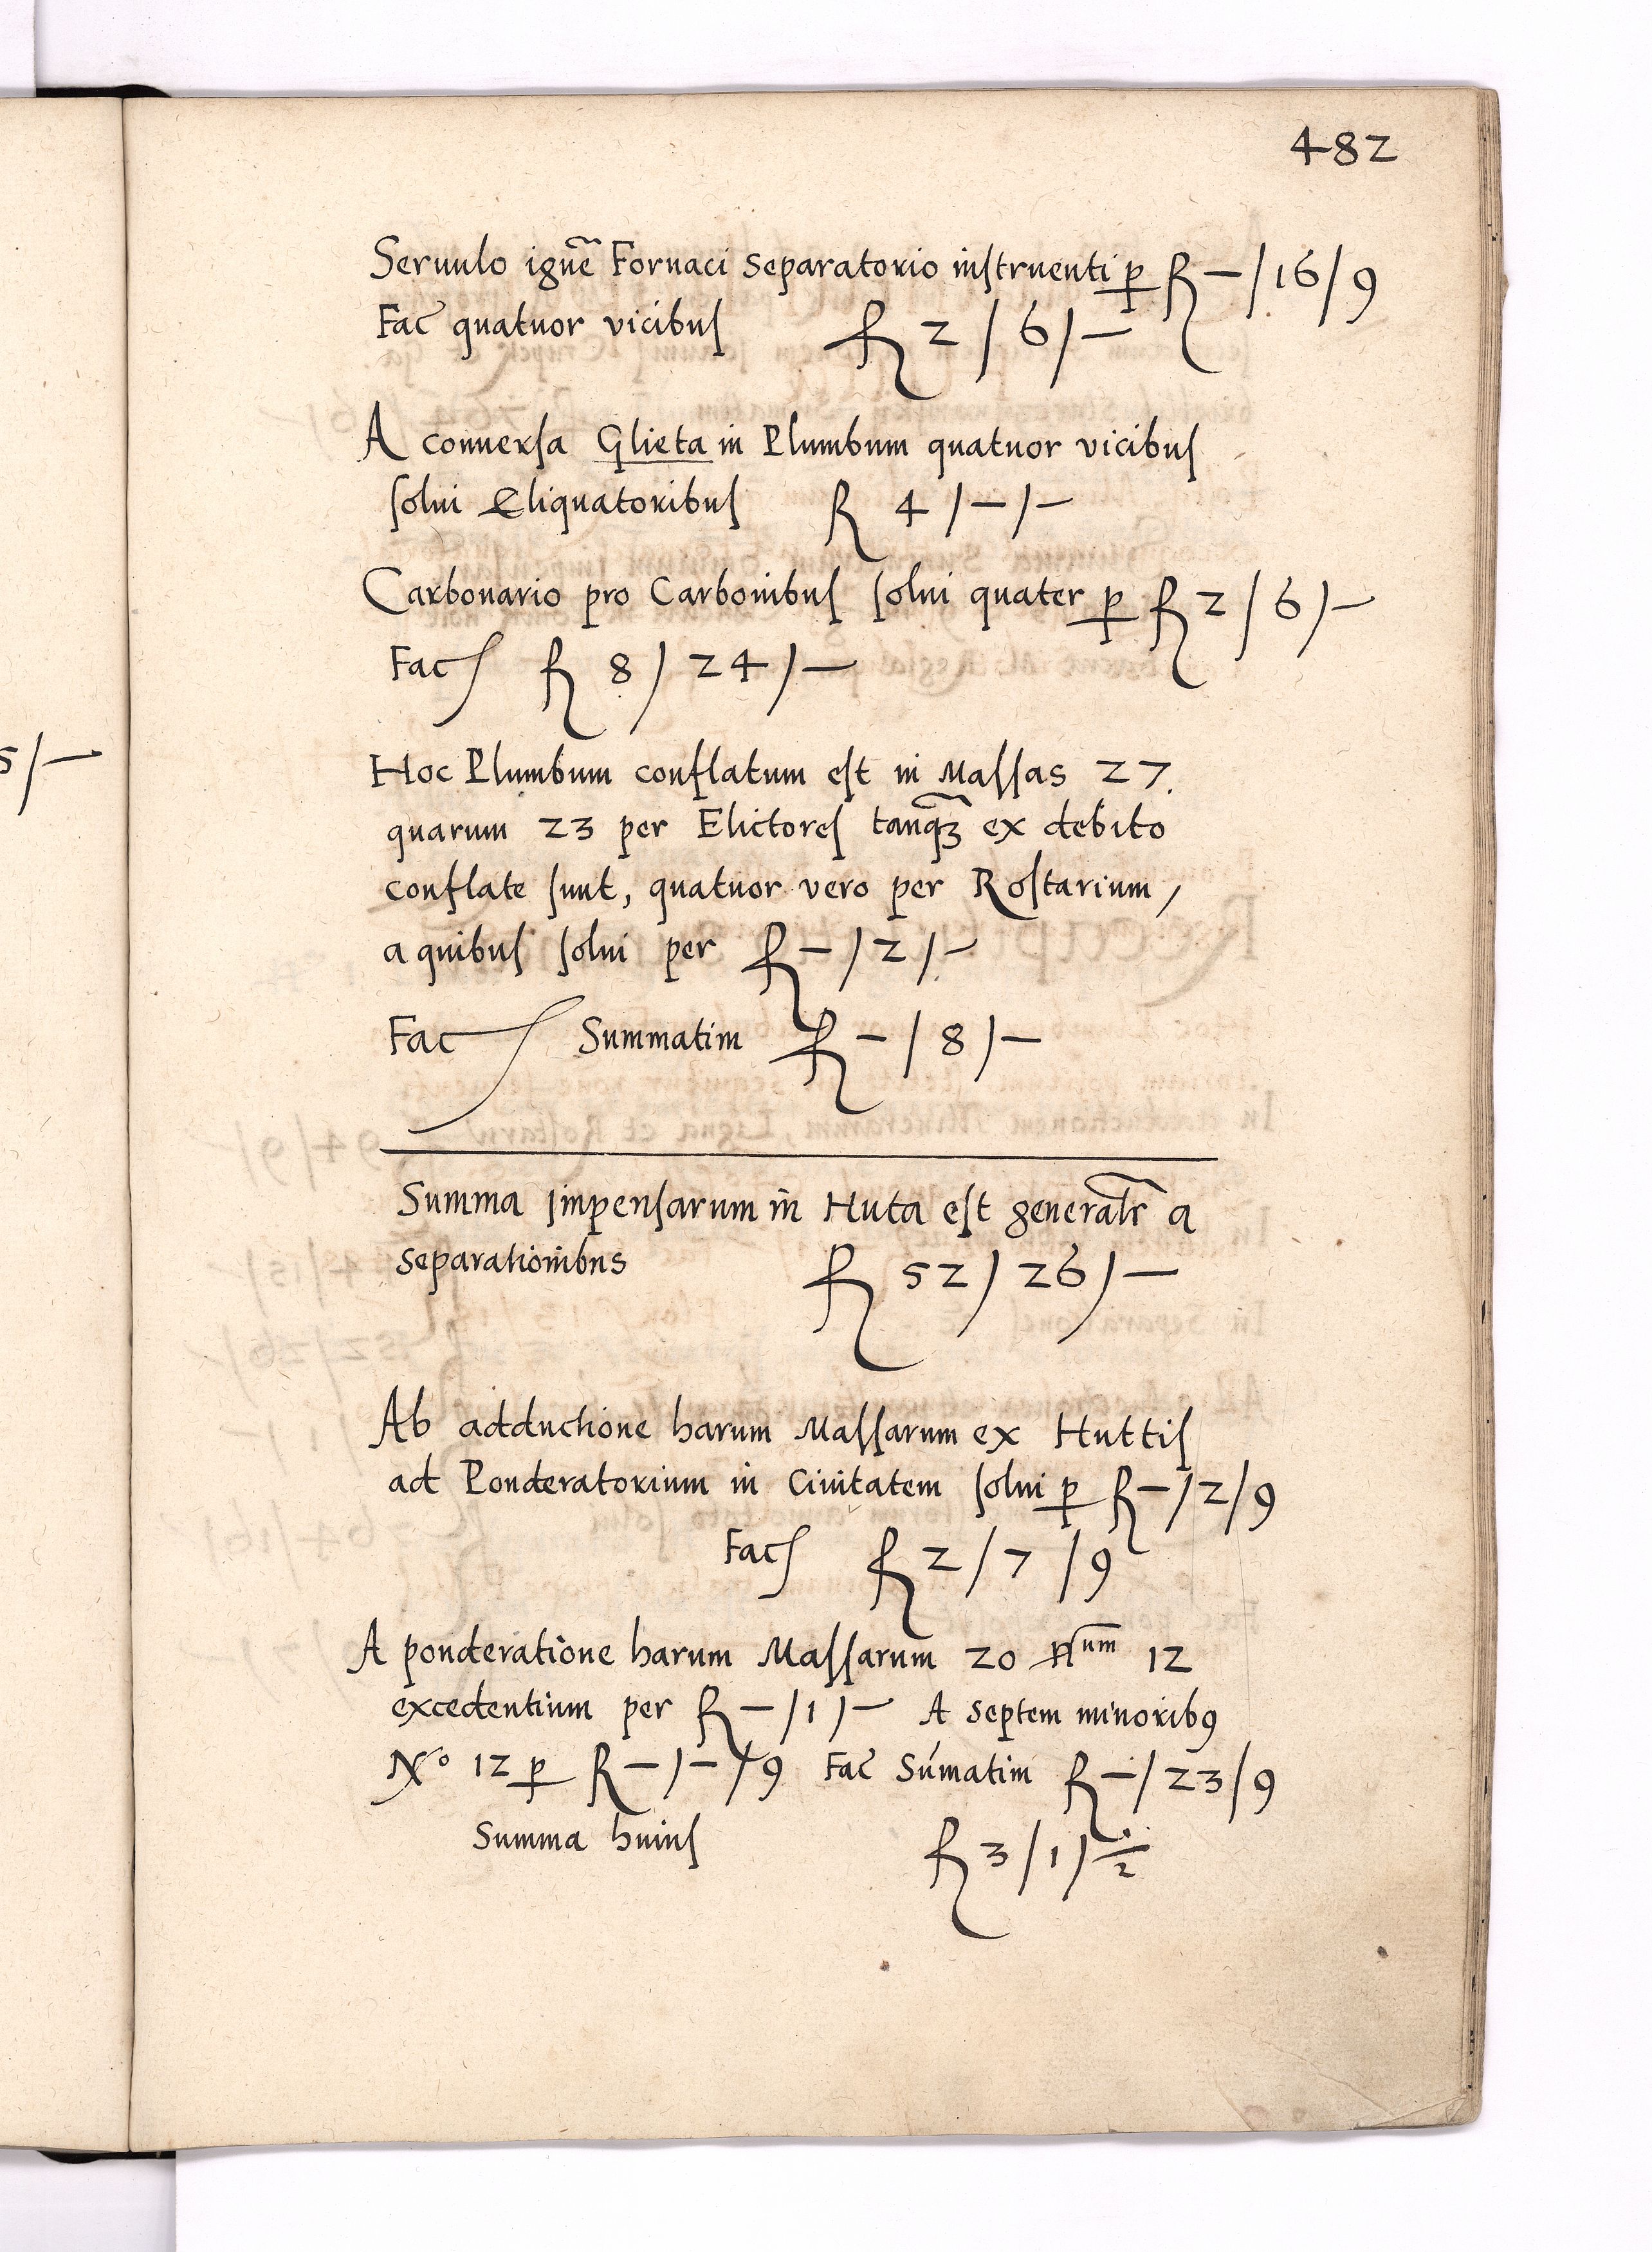 482
Seruulo igne͂ Fornaci separatorio instruenti ꝑ R —/16/9
Fac̄ quatuor vicibus R 2/6/—
A conuersa Glieta in Plumbum quatuor vicibus
solui Eliquatoribus R 4/—/—
Carbonario pro Carbonibus solui quater ꝑ R 2/6/—
Fac R 8/24/—
5/—
Hoc Plumbum conflatum est in Massas 27.
quarum 23 per Elictores tanqȝ̃ ex debito
conflate sunt, quatuor vero per Rostarium,
a quibus solui per R —/2/—
Fac Summatim R —/8/—
Summa Impensarum in Huta est generalr̃ a
separationibus R 52/26/—
Ab adductione harum Massarum ex Huttis
ad Ponderatorium in Ciuitatem solui ꝑ R —/2/9
Fac R 2/7/9
A ponderatione harum Massarum 20 Nᵘᵐ 12
excedentium per R —/1/— A septem minoribꝰ
Nº 12 ꝑ R —/—/9 Fac̄ Sūmatim R —/23/9
Summa huius R 3/1/½